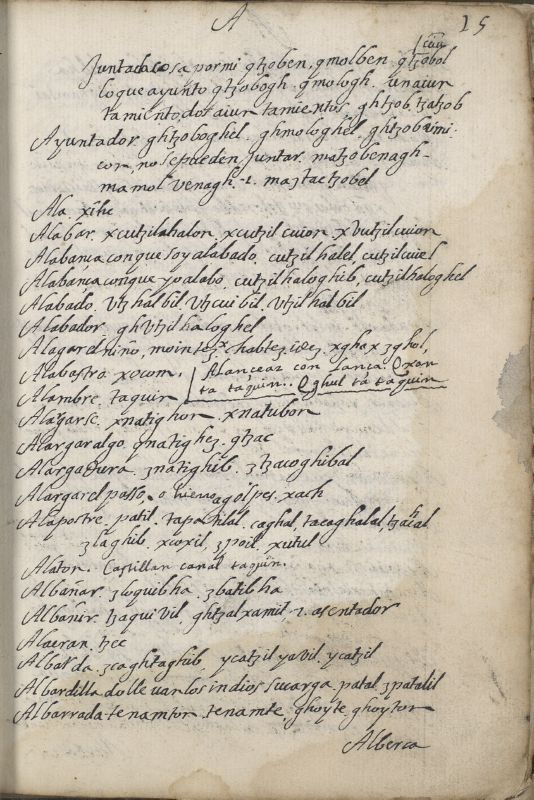 A 15
Juntada cosa por mi qtzoben, qmolben. qtzobol
lo que ayunto qtzobogh. qmologh. un aiun
tamiento, dos aiuntamientos, ghtzob. tzatzob
Ayuntador. ghtzoboghel. ghmologhel. ghtzobavini.
cor, no se pueden Juntar. matzobenagh-
mamolvenagh. l. majtactzobel
Ala. xihc
Alabar. xcutzilahalon. xcutzil cuion. xvutzil cuion
Alabança con que soy alabado, cutzil halel, cutzil cuiel
Alabança con que yo alabo, cutzil haloghib, cutzil haloghel
Alabado. Utzhalbil. Utzcuibil. Utzil halbil
Alabador. ghUtzil haloghel
Alagar el niño, mointez. x. habtez, xghax zghol,
Alabastro xocom. Alancear con lança. Oxon
ta taquin.. Oghul ta taquin
Alambre, taquin
Alagarse. xnatighon. xnatubon
Alargar algo. qnatighez. qtzac
Alargadura. znatigheb. ztzacoghibal
Alargar el passo, o huevo a golpes. xach
Alapostre. patil. tapatilal. caghal, tacaghalal, tzahcal
zlaghib. xcoxil, zpoil. xutul
Alaton. Castillan canal taquin.
Albañar. zloquibha. zbatibha
Albañir. tzaquivil, ghtzalxamit, l. asentador
Alacran. tzec
Albarda. zcaghtaghib, ycatzil yavil. ycatzil
Albardilla do llevan los indios su carga. patal. zpatalil
Albarrada tenamton. tenamte, ghoyte. ghoyton
Alberca